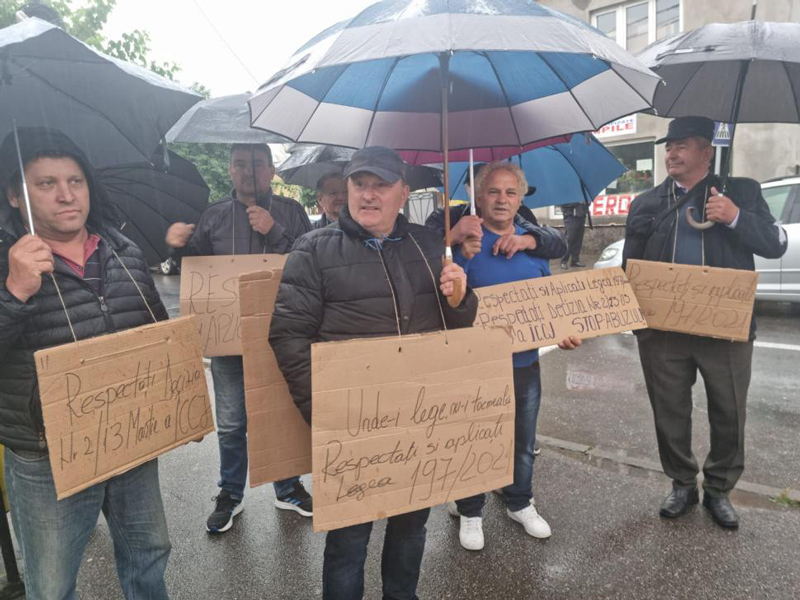 Respectați Decizia
Nr 2/13 Martie a ICCJ
RES
Unde-i lege, nu-i tocmeala
Respectati si aplicati
Legea 197/2021
Respectati si Aplicati Legea 197
Respectati Decizia Nr 2
a ICCJ STOP ABUZURI
Respectati si aplicati
197/2021
PILE